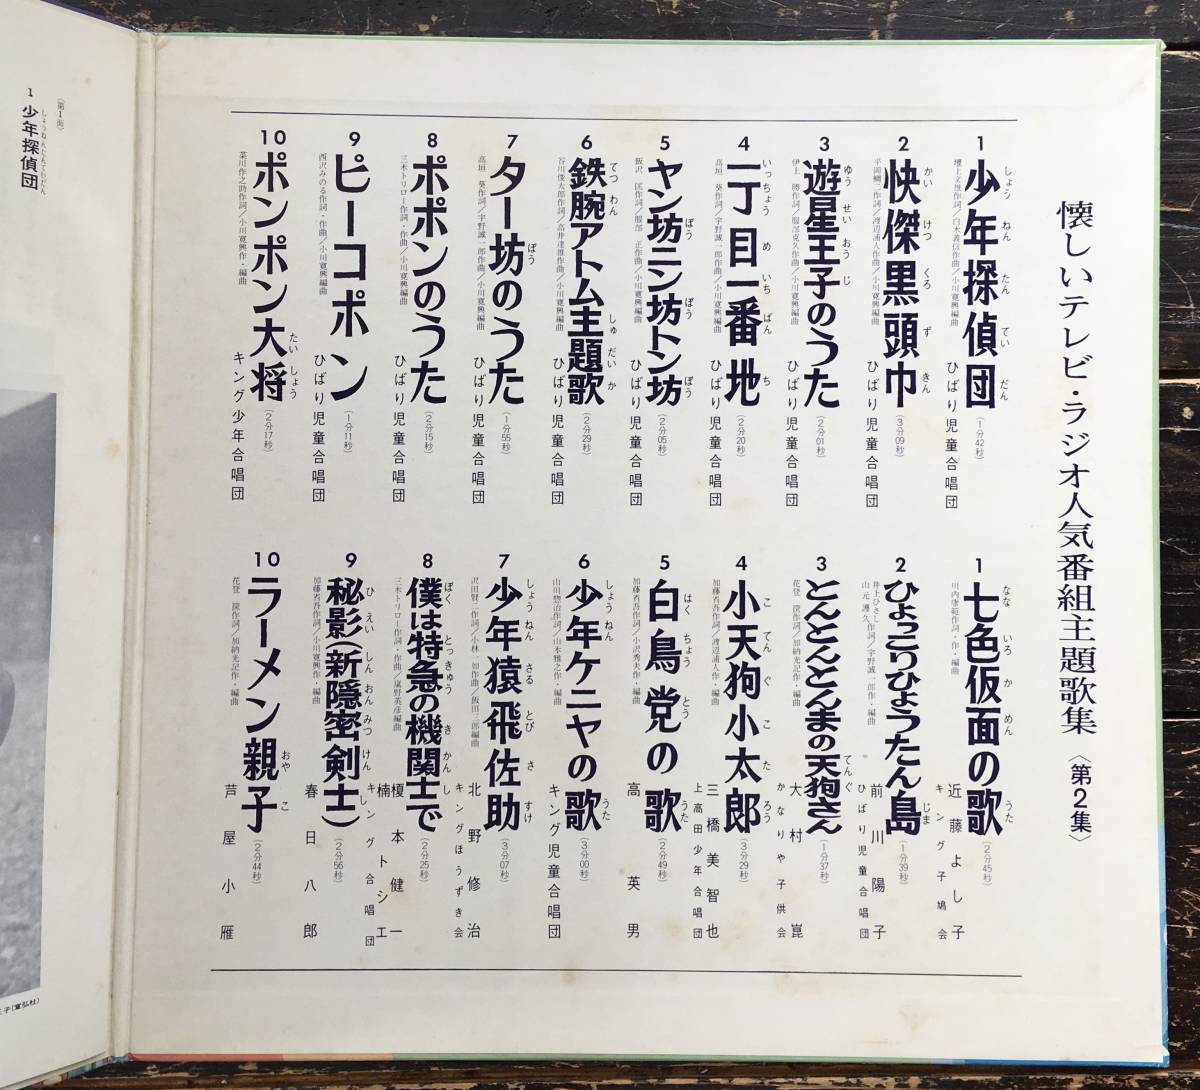 懐しいテレビ・ラジオ人気番組主題歌集〈第2集〉
1 少年探偵団
しょうねんたんていだん
ひばり児童合唱団
(1分42秒)
2 快傑黒頭巾
かいけつくろずきん
ひばり児童合唱団
(3分09秒)
3 遊星王子のうた
ゆうせいおうじ
伊上 勝作詞/服部克久作曲/小川寛興編曲
ひばり児童合唱団
(2分01秒)
4 一丁目一番地
いっちょうめいちばんち
高垣 葵作詞/宇野誠一郎作曲/小川寛興編曲
ひばり児童合唱団
(2分20秒)
5 ヤン坊ニン坊トン坊
ぼうぼうぼう
飯沢 匡作詞/服部 正作曲/小川寛興編曲
ひばり児童合唱団
(2分05秒)
6 鉄腕アトム主題歌
てつわんしゅだいか
谷川俊太郎作詞/高井達雄作曲/小川寛興編曲
ひばり児童合唱団
(2分29秒)
7 ター坊のうた
ぼう
高垣 葵作詞/宇野誠一郎作曲/小川寛興編曲
ひばり児童合唱団
(1分55秒)
8 ポポンのうた
三木トリロー作詞・作曲/小川寛興編曲
ひばり児童合唱団
(2分15秒)
9 ピーコポン
西沢みのる作詞・作曲/小川寛興編曲
ひばり児童合唱団
(1分11秒)
10 ポンポン大将
たいしょう
菜川作之助作詞/小川寛興作・編曲
キング少年合唱団
(2分17秒)
1 七色仮面の歌
なないろかめんうた
川内康範作詞・作・編曲
近藤よし子
キング子鳩会
(2分45秒)
2 ひょっこりひょうたん島
じま
井上ひさし作詞/宇野誠一郎作・編曲
山元護久
前川陽子
ひばり児童合唱団
(1分39秒)
3 とんとんとんまの天狗さん
てんぐ
花登 筐作詞/加納光記作・編曲
大村崑
かなりや子供会
(1分37秒)
4 小天狗小太郎
こてんぐこたろう
加藤省吾作詞/渡辺浦人作・編曲
三橋美智也
上高田少年合唱団
(3分29秒)
5 白鳥党の歌
はくちょうとううた
加藤省吾作詞/小沢秀夫作・編曲
高英男
(2分49秒)
6 少年ケニヤの歌
しょうねんうた
山川惣治作詞/山本雅之作・編曲
キング児童合唱団
(3分00秒)
7 少年猿飛佐助
しょうねんさるとびさすけ
北野修治
キングほうずき会
(3分07秒)
8 僕は特急の機関士で
ぼくとっきゅうきかんし
三木トリロー作詞・作曲/嵐野英彦編曲
榎本健一
楠トシエ
キング合唱団
(2分25秒)
9 秘影(新隠密剣士)
ひえいしんおんみつけんし
加藤省吾作詞/小川寛興作・編曲
春日八郎
(2分56秒)
10 ラーメン親子
おやこ
花登 筐作詞/加納光記作・編曲
芦屋小雁
(2分44秒)
(第1面)
1 少年探偵団
しょうねんたんていだん
王子(宣弘社)